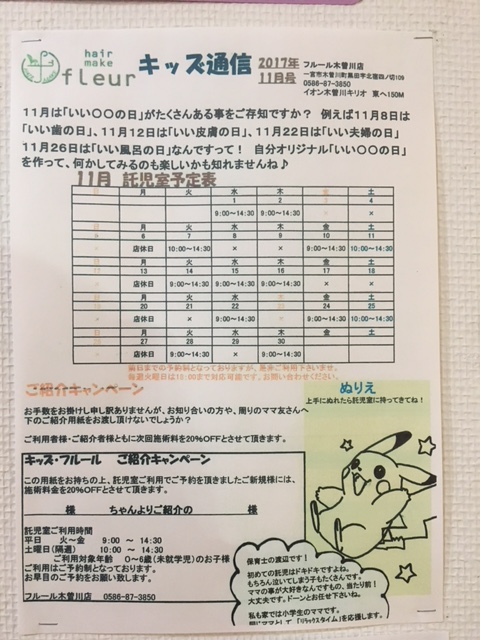 hair
make
fleur
キッズ通信
2017年
11月号
フルール木曽川店
0586-87-3850
イオン木曽川キリオ 東へ150M
11月は「いい〇〇の日」がたくさんある事をご存知ですか? 例えば11月8日は
「いい歯の日」、11月12日は「いい皮膚の日」、11月22日は「いい夫婦の日」
11月26日は「いい風呂の日」なんですって! 自分オリジナル「いい〇〇の日」
を作って、何かしてみるのも楽しいかも知れませんね♪
11月 託児室予定表
日 月 火 水 木 金 土
1 2 3 4
9:00~14:30 9:00~14:30 × ×
日 月 火 水 木 金 土
6 7 8 9 10 11
店休日 10:00~14:30 × × 9:00~14:30 10:00~14:30
日 月 火 水 木 金 土
12 13 14 15 16 17 18
店休日 9:00~14:30 × 9:00~14:30 9:00~14:30 ×
日 月 火 水 木 金 土
20 21 22 23 24 25
店休日 9:00~14:30 9:00~14:30 × 9:00~14:30 10:00~14:30
日 月 火 水 木 金 土
27 28 29 30
店休日 9:00~14:30 × 9:00~14:30
前日までの予約制となっておりますが、是非ご利用下さいませ。
ご紹介キャンペーン
お手数をお掛けし申し訳ありませんが、お知り合いの方や、周りのママ友さんへ
下のご紹介用紙をお渡し頂けないでしょうか?
ご利用者様・ご紹介者様ともに次回施術料を20%OFFとさせて頂きます。
ぬりえ
上手にぬれたら託児室に持ってきてね!
キッズ・フルール ご紹介キャンペーン
この用紙をお持ちの上、託児室ご利用でご予約を頂きましたご新規様には、
施術料金を20%OFFとさせて頂きます。
様 ちゃんよりご紹介の 様
託児室ご利用時間
平日 火~金 9:00 ~ 14:30
土曜日(隔週) 10:00 ~ 14:30
ご利用対象年齢 0~6歳(未就学児)のお子様
ご利用はご予約制となっております。
お早目のご予約をお願い致します。
フルール木曽川店 0586-87-3850
保育士の渡辺です!
初めての託児はドキドキですよね。
もちろん泣いてしまう子もたくさんです。
ママの事が大好きなんですもの、当たり前!
大丈夫です。ドーンとお任せ下さいね。
私も家では小学生のママです。
同じママとして「リラックスタイム」を応援します。